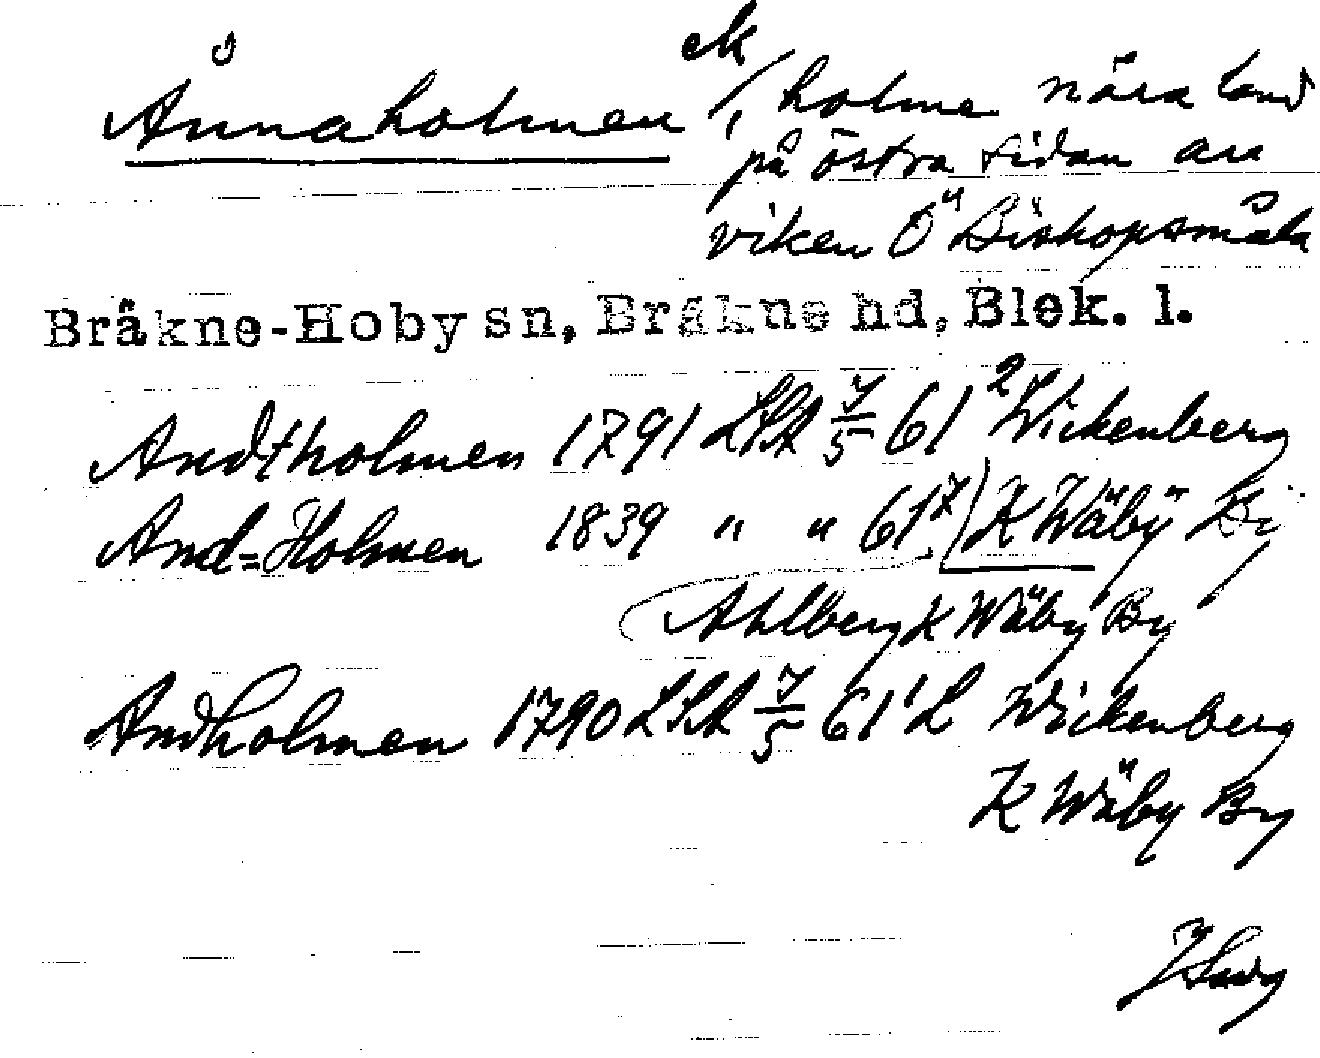 Ånnaholmen ek, holme nära land
på östra sidan av
viken Ö Biskopsmåla
Bräkne-Hoby sn, Bräkne hd, Blek. l.
Andtholmen 1791 LSA 7/5 61² Wickenberg
And-Holmen 1839 " " 61⁷ K Wäby By
Ahlberg K Wäby By
Andholmen 1790 LSA 7/5 61¹ L Wickenberg
K Wäby By